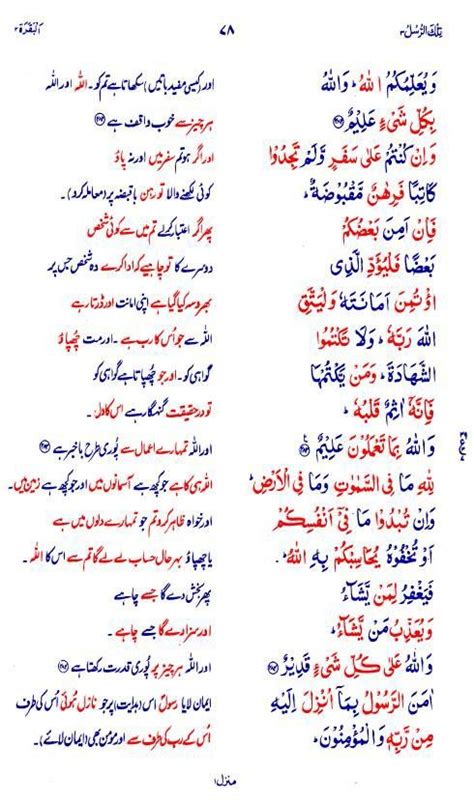 تِلْكَ الرُّسُلُ ۳ ۷۸ اَلْبَقَرَة ۲
وَيُعَلِّمُكُمُ اللّٰهُ ؕ وَاللّٰهُ اور (کیسی مفید باتیں) سکھاتا ہے تم کو۔ اللہ اور اللہ
بِكُلِّ شَیْءٍ عَلِيْمٌ ہر چیز سے خوب واقف ہے
وَاِنْ كُنْتُمْ عَلٰى سَفَرٍ وَّلَمْ تَجِدُوْا اور اگر ہو تم سفر میں اور نہ پاؤ
كَاتِبًا فَرِهٰنٌ مَّقْبُوْضَةٌ ؕ کوئی لکھنے والا تو رہن باقبضہ پر (معاملہ کرو)۔
فَاِنْ اَمِنَ بَعْضُكُمْ پھر اگر اعتبار کرلے تم میں سے کوئی شخص
بَعْضًا فَلْيُؤَدِّ الَّذِى دوسرے کا تو چاہیے کہ ادا کرے وہ شخص جس پر
اؤْتُمِنَ اَمَانَتَهٗ وَلْيَتَّقِ بھروسہ کیا گیا ہے اپنی امانت اور ڈرتا رہے
اللّٰهَ رَبَّهٗ ؕ وَلَا تَكْتُمُوا اللہ سے جو اُس کا رب ہے۔ اور مت چُھپاؤ
الشَّهَادَةَ ؕ وَمَنْ يَّكْتُمْهَا گواہی کو۔ اور جو چُھپاتا ہے گواہی کو
فَاِنَّهٗۤ اٰثِمٌ قَلْبُهٗ ؕ تو در حقیقت گنہگار ہے اس کا دل۔
وَاللّٰهُ بِمَا تَعْمَلُوْنَ عَلِيْمٌ اور اللہ تمہارے اعمال سے پُوری طرح باخبر ہے
لِلّٰهِ مَا فِى السَّمٰوٰتِ وَمَا فِى الْاَرْضِ ؕ اللہ ہی کا ہے جو کچھ ہے آسمانوں میں اور جو کچھ ہے زمین میں۔
وَاِنْ تُبْدُوْا مَا فِىْۤ اَنْفُسِكُمْ اور خواہ ظاہر کرو تم جو تمہارے دلوں میں ہے
اَوْ تُخْفُوْهُ يُحَاسِبْكُمْ بِهِ اللّٰهُ ؕ یا چھپاؤ بہرحال حساب لے لے گا تم سے اس کا اللہ۔
فَيَغْفِرُ لِمَنْ يَّشَآءُ پھر بخش دے گا جسے چاہے
وَيُعَذِّبُ مَنْ يَّشَآءُ ؕ اور سزا دے گا جسے چاہے۔
وَاللّٰهُ عَلٰى كُلِّ شَیْءٍ قَدِيْرٌ اور اللہ ہر چیز پر پُوری قدرت رکھتا ہے
اٰمَنَ الرَّسُوْلُ بِمَاۤ اُنْزِلَ اِلَيْهِ ایمان لایا رسولؐ اس (ہدایت) پر جو نازل ہُوئی اُس کی طرف
مِنْ رَّبِّهٖ وَالْمُؤْمِنُوْنَ ؕ اُس کے رب کی طرف سے اور مؤمن بھی (ایمان لائے)۔
منزل ۱